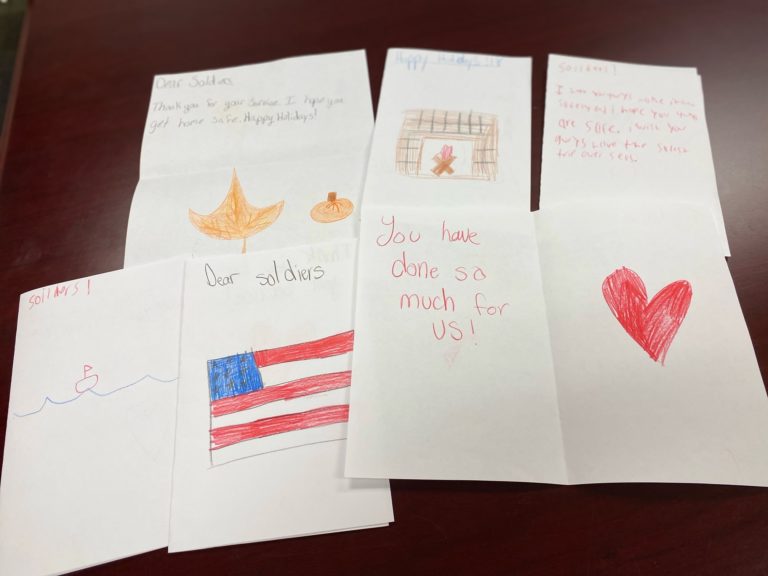 Dear Soldiers,
Thank you for your service. I hope you
get home safe. Happy Holidays!
Happy Holidays!!!
Soldiers!
I hope you guys
safely and I hope you guys
are safe. I wish you
guys have the safest
time over seas.
Soldiers!
Dear soldiers
You have
done so
much for
US!